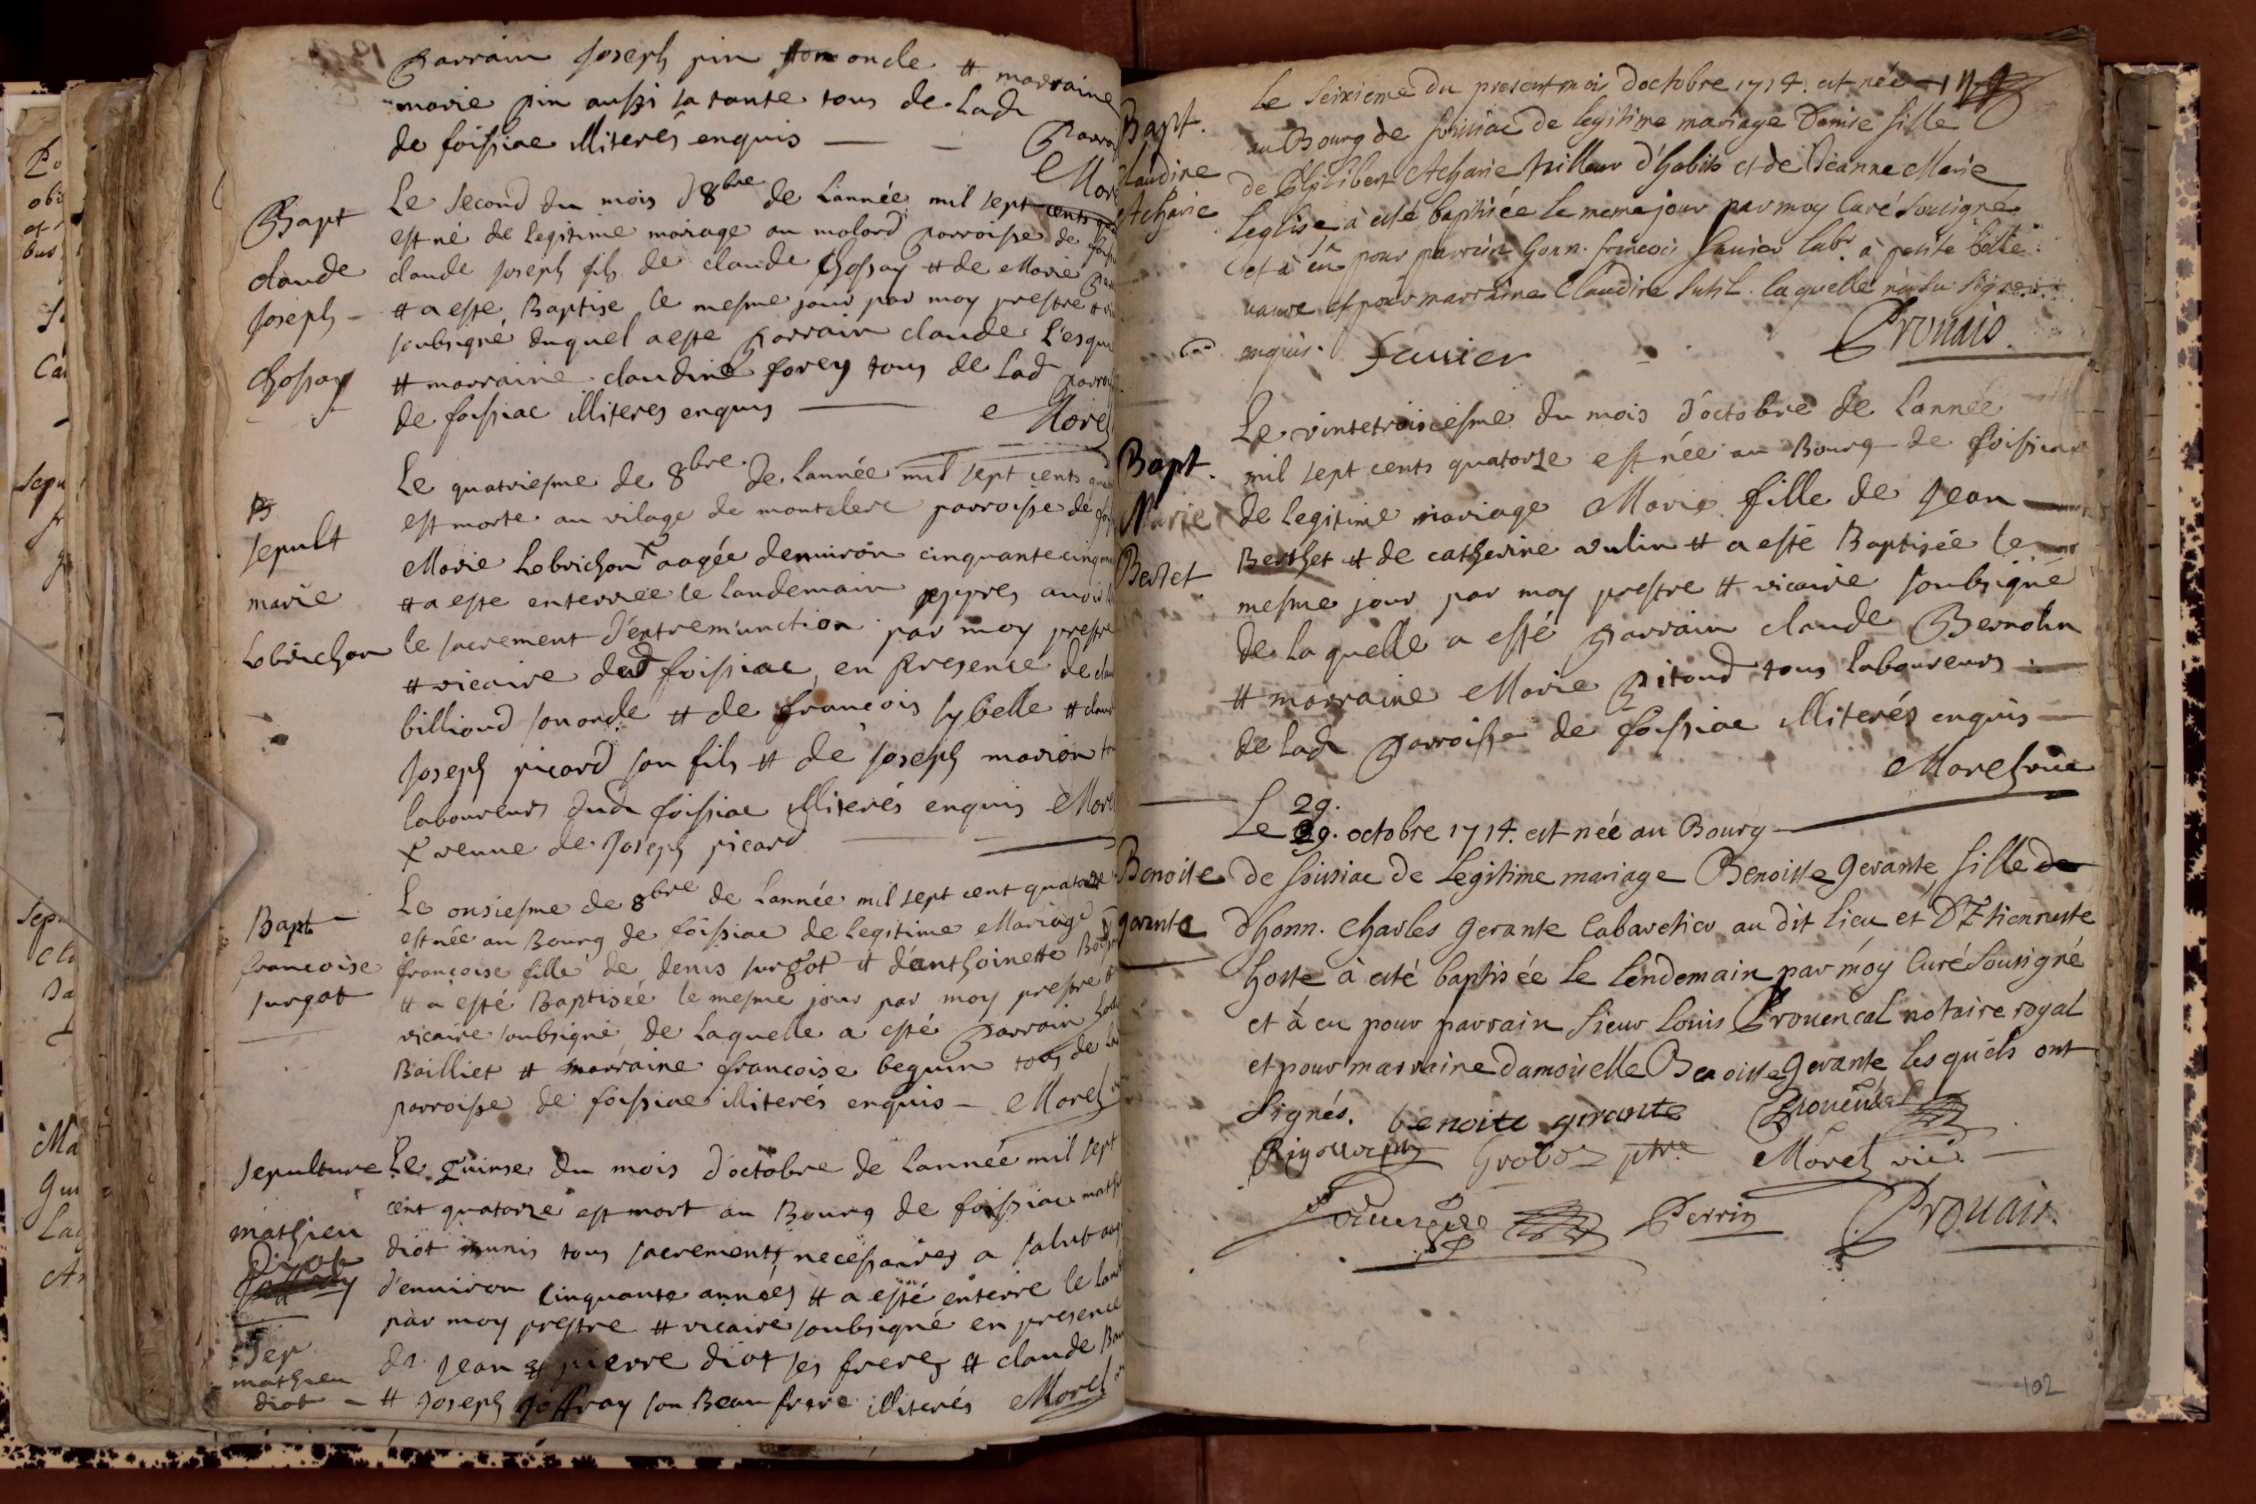 parrain Joseph pin son oncle # marraine
marie pin aussi sa tante tous de lad
de foissiac illiterés enquis
Bapt
claude
joseph
Chossay
Le second du mois d 8bre de l'année mil sept cents
est né de legitime mariage au molard parroisse de
claude joseph fils de claude Chossay # de Marie
# a este Baptise le mesme jour par moy prestre
soubsigné duquel a este parrain claude
# marraine claudine forey tous de lad
de foissiac illiteres enquis Morel
sepult
marie
Lobrichon
Le quatriesme de 8bre de l'année mil sept cents
est morte au vilage de montclere parroisse de
Marie Lobrichon x aagée d'enuiron cinquante cinq
# a este enterrée le landemain appres auoir
le sacrement d'extremunction par moy prestre
# vicaire dud foissiac en presence de
billioud son oncle # de françois sybelle #
Joseph picard son fils # de joseph marion
laboureurs dud foissiac illiterés enquis Morel
x veuue de Joseph picard
Bapt
francoise
surgot
Le onsiesme de 8bre de l'année mil sept cent quatorze
est née au Bourg de foissiac de legitime Mariage
françoise fille de denis surgot # d'anthoinette
# a esté Baptisée le mesme jour par moy prestre #
vicaire soubsigné de laquelle a esté parrain
Bailliet # marraine francoise beguin tous de
parroisse de foissiac illiterés enquis Morel
sepulture
mathieu
Diot
Le quinse du mois d'octobre de l'année mil sept
cent quatorze est mort au Bourg de foissiac
diot munis tous sacrements necessaires a salut
d'enuiron cinquante années # a esté enterré le
par moy prestre # vicaire soubsigné en presence
de jean # pierre diot ses freres # claude
# joseph joffray son Beau frere illiterés Morel
Sep
mathieu
diot
Bapt.
Claudine
Acharie
Le seixieme du present mois d'octobre 1714. est née
au Bourg de foissiac de legitime mariage Denise fille
de Philibert Acharie tailleur d'habits et de Jeanne Marie
Leglise à esté baptisée le meme jour par moy Curé Sousigné
et à eu pour parrain honn. francois Sauier lab. à petite
vavre et pour marraine Claudine laquelle n'a su signer
enquis. Sauier Prouais.
Bapt.
Marie
Bertet
Le vintetroisiesme du mois d'octobre de l'année
mil sept cents quatorze est née au Bourg de foissiac
de legitime mariage Marie fille de jean
Berthet # de catherine vulin # a esté Baptisée le
mesme jour par moy prestre # vicaire soubsigné
de laquelle a esté parrain claude Bernolin
# marraine Marie pitoud tous laboureurs
de lad parroisse de foissiac illiterés enquis
Morel vic
Benoite
gerante
29.
Le 29. octobre 1714. est née au Bourg
de foissiac de Legitime mariage Benoitte gerante fille de
d'honn. Charles gerante Cabaretier au dit lieu et D'Etiennette
hoste à esté baptisée le lendemain par moy Curé Sousigné
et à eu pour parrain sieur Louis Prouencal notaire royal
et pour marraine damoiselle Benoitte gerante lesquels ont
signés. benoite gerante Prouencal
Groboz ptre Morel vic
Perrin Prouais.
102